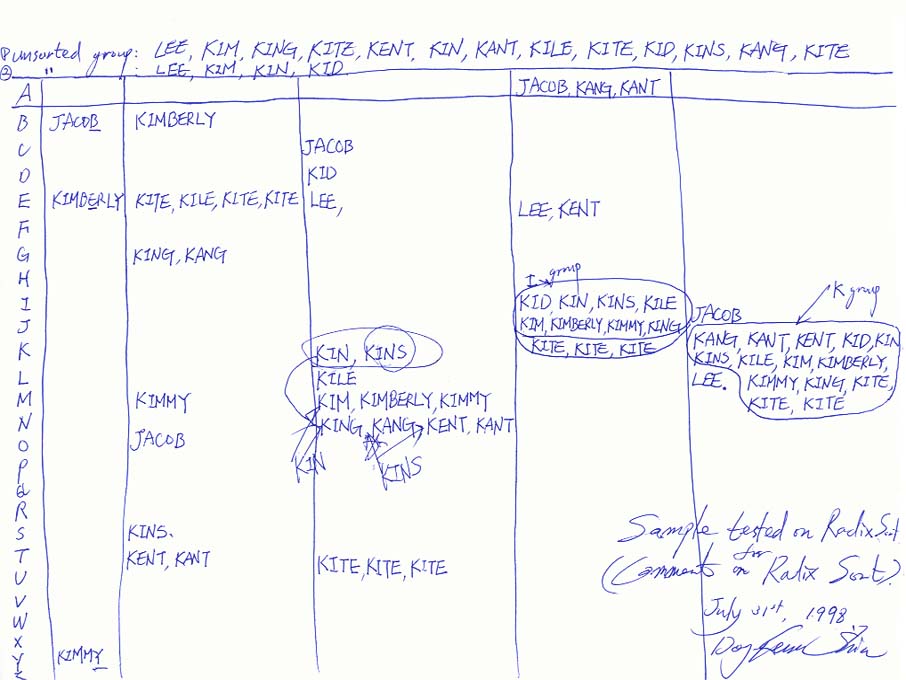 ① unsorted group: LEE, KIM, KING, KITE, KENT, KIN, KANT, KILE, KITE, KID, KINS, KANG, KITE
② " : LEE, KIM, KIN, KID
A JACOB, KANG, KANT
B JACOB KIMBERLY
C JACOB
D KID
E KIMBERLY KITE, KILE, KITE, KITE LEE, LEE, KENT
F
G KING, KANG
H
I group
I KID, KIN, KINS, KILE
K group
J KIM, KIMBERLY, KIMMY, KING JACOB
K KIN, KINS KITE, KITE, KITE KANG, KANT, KENT, KID, KIN
KINS, KILE, KIM, KIMBERLY,
L KILE LEE. KIMMY, KING, KITE,
M KIMMY KIM, KIMBERLY, KIMMY KITE, KITE
N KING, KANG, KENT, KANT
O JACOB
P KIN KINS
Q
R
S KINS.
T KENT, KANT KITE, KITE, KITE
U
V
W
X
Y KIMMY
Sample tested on Radix Sort.
for
(Comments on Radix Sort).
July 31st, 1998.